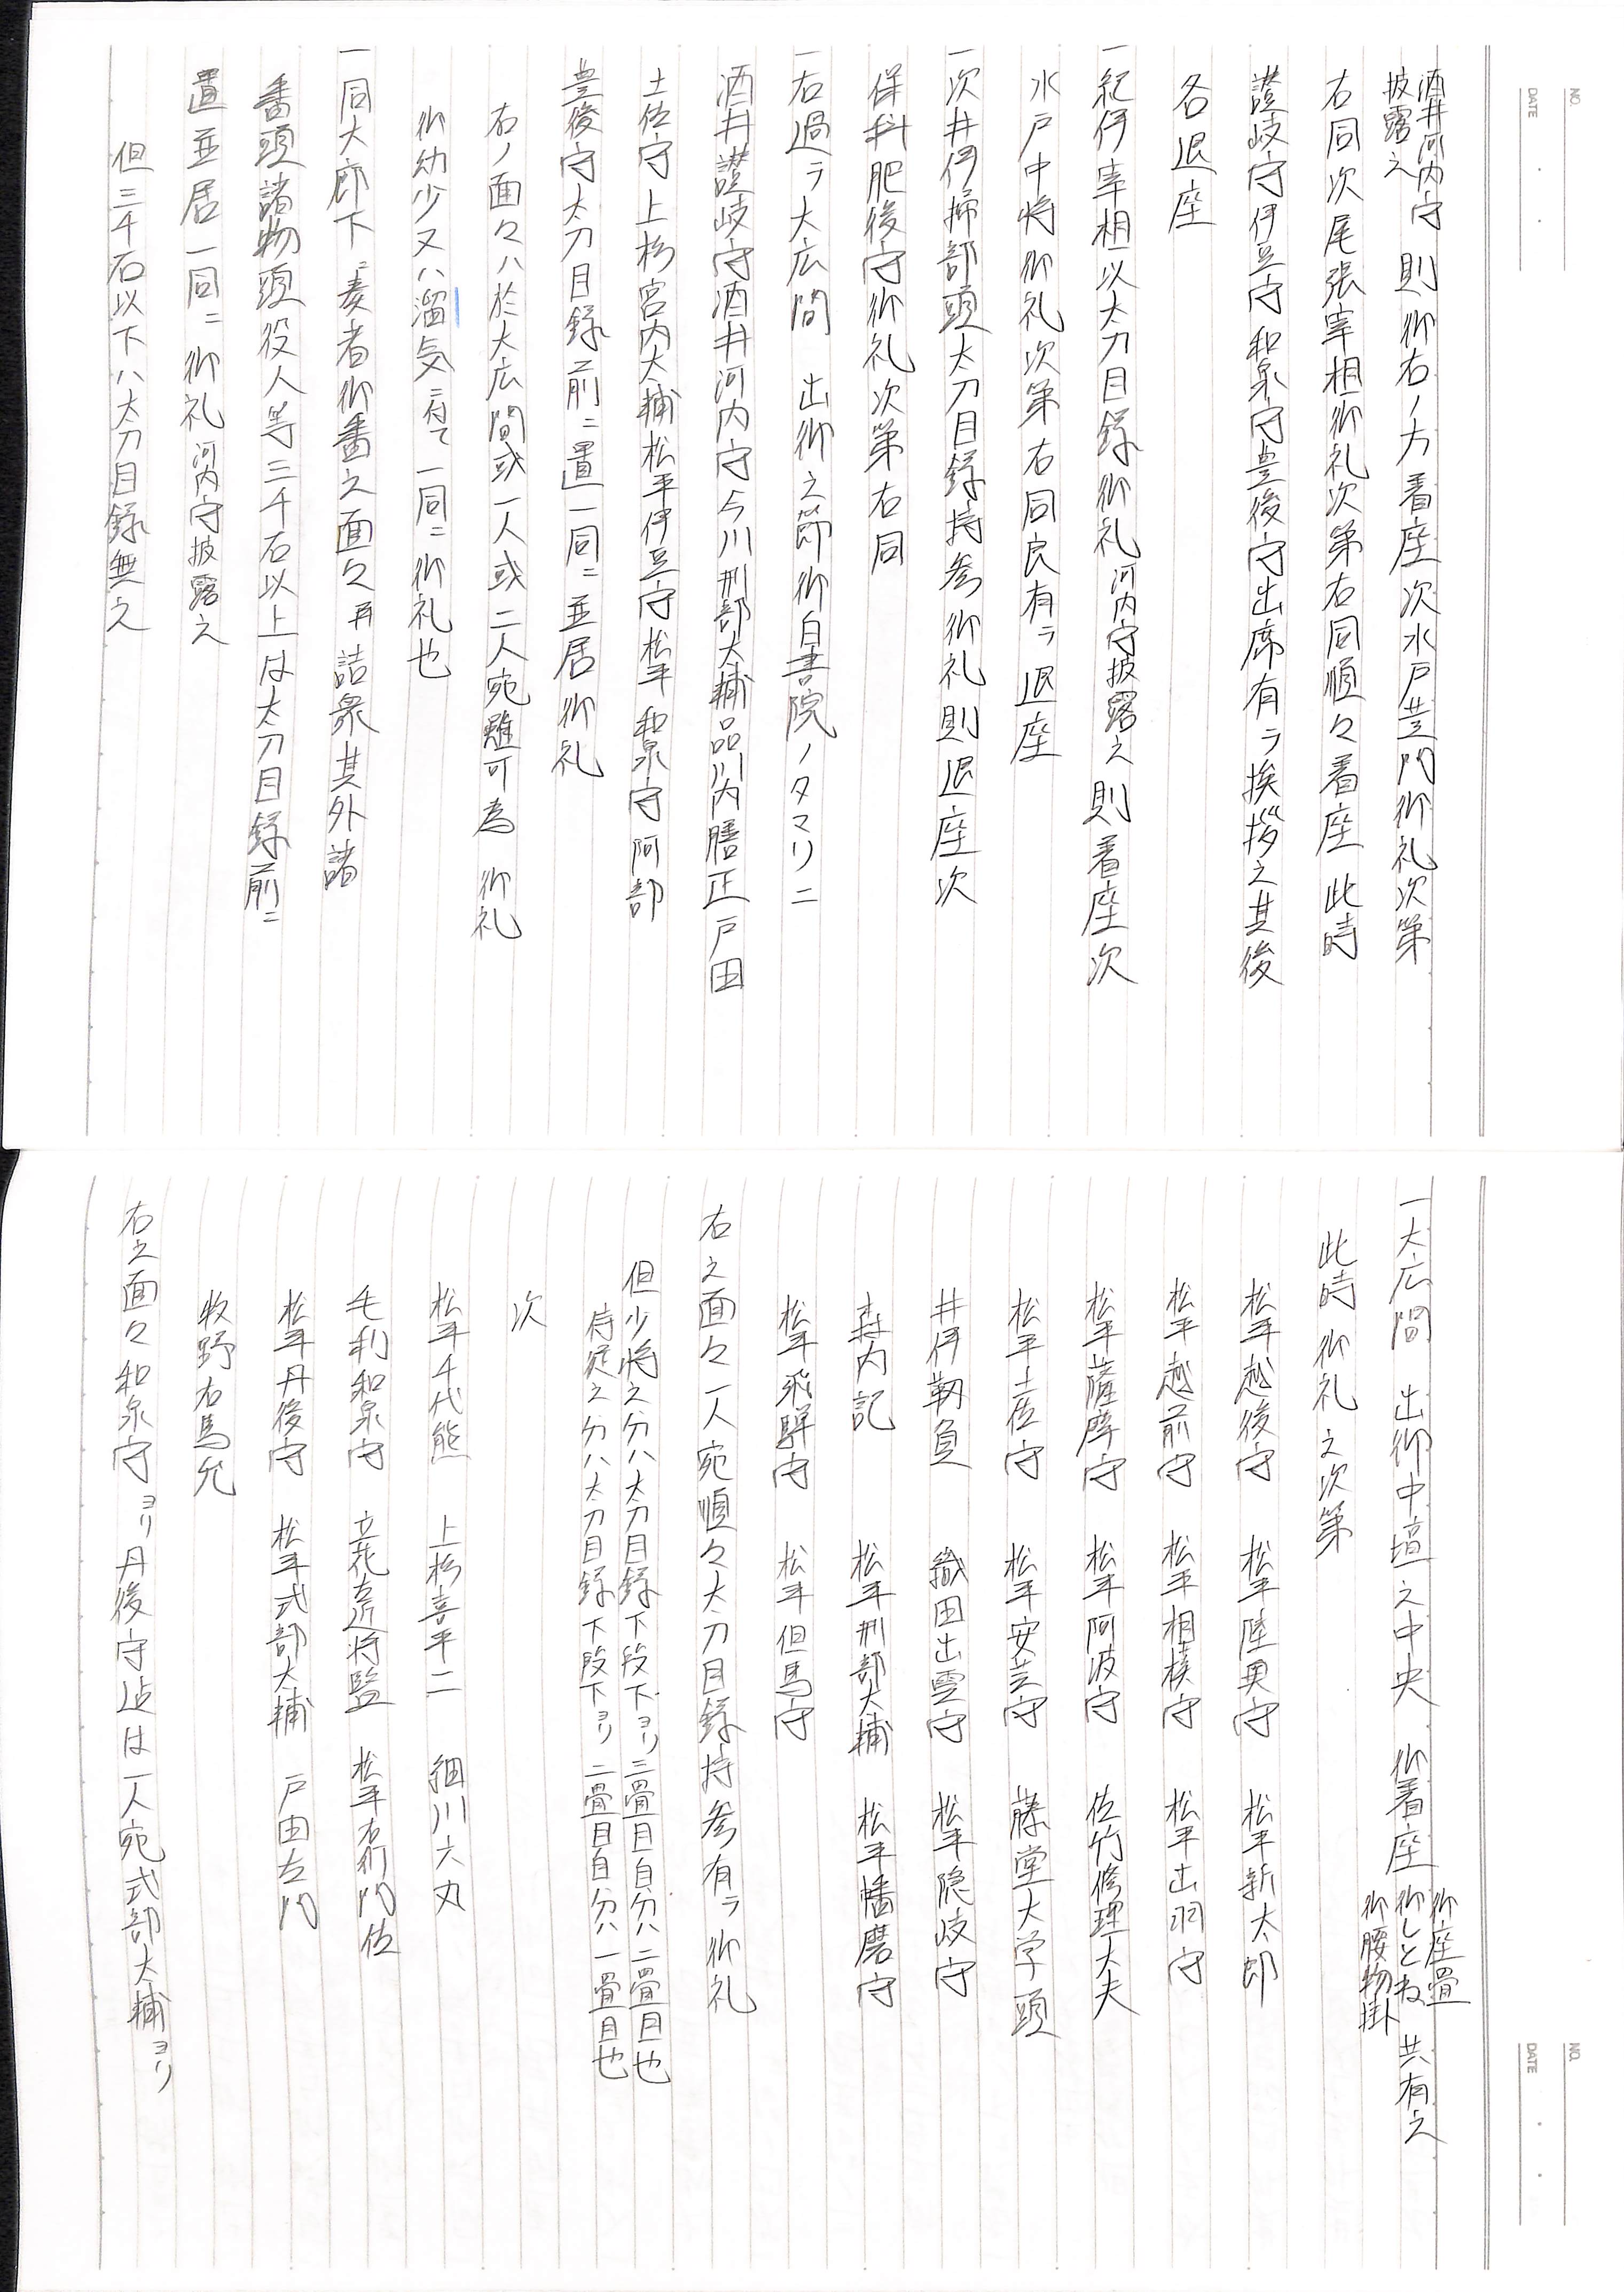 NO.
DATE
酒井河内守
披露之 則御右ノ方着座次水戸黄門御礼次第
右同次尾張宰相御礼次第右同順々着座 此時
讃岐守伊豆守和泉守豊後守出席有ラ挨拶之其後
各退座
一紀伊宰相以太刀目録御礼河内守披露之則着座次
水戸中将御礼次第右同良有ラ退座
一次井伊掃部頭太刀目録持参御礼則退座次
保科肥後守御礼次第右同
一右過ラ大広間 出御之節御白書院ノタマリニ
酒井讃岐守酒井河内守今川刑部大輔品川内膳正戸田
土佐守上杉宮内大輔松平伊豆守松平和泉守阿部
豊後守太刀目録前ニ置一同ニ並居御礼
右ノ面々ハ於大広間或一人或二人宛雖可為 御礼
御幼少又ハ溜気ニ付て一同ニ御礼也
一同大廊下ニ奏者御番之面々再詰衆其外諸
番頭諸物頭役人等三千石以上は太刀目録前ニ
置並居一同ニ御礼河内守披露之
但三千石以下ハ太刀目録無之
NO.
DATE
一大広間 出御中壇之中央 御着座 御座畳 御しとね 御腰物掛 共有之
此時御礼之次第
松平越後守 松平陸奥守 松平新太郎
松平越前守 松平相模守 松平出羽守
松平薩摩守 松平阿波守 佐竹修理大夫
松平土佐守 松平安芸守 藤堂大学頭
井伊靱負 織田出雲守 松平隠岐守
森内記 松平刑部大輔 松平幡磨守
松平飛騨守 松平但馬守
右之面々一人宛順々太刀目録持参有ラ御礼
但少将之分ハ太刀目録下段下ヨリ三畳目自分ハ二畳目也
侍従之分ハ太刀目録下段下ヨリ二畳目自分ハ一畳目也
次
松平千代熊 上杉喜平二 細川六丸
毛利和泉守 立花左近将監 松平右衛門佐
松平丹後守 松平式部大輔 戸田左門
牧野右馬允
右之面々和泉守ヨリ丹後守迄は一人宛式部大輔ヨリ